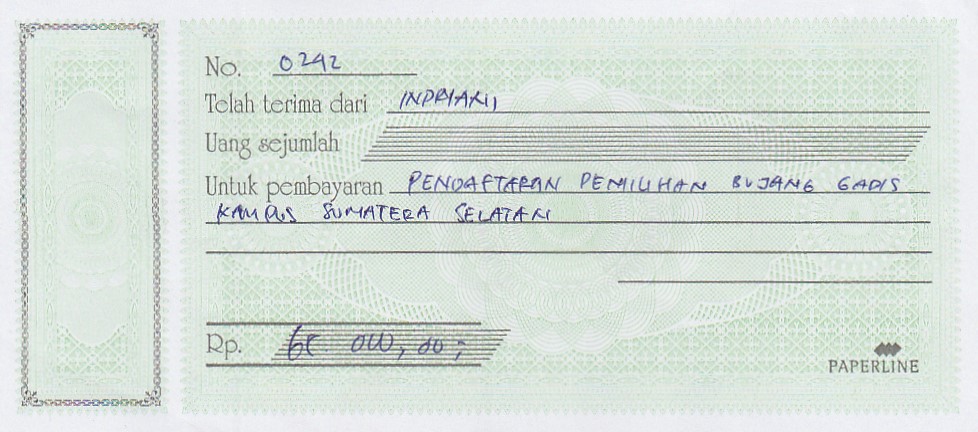 No. 0242
Telah terima dari INDRIANI
Uang sejumlah
Untuk pembayaran PENDAFTARAN PEMILIHAN BUJANG GADIS
KAMPUS SUMATERA SELATAN
Rp. 65.000,00;
PAPERLINE